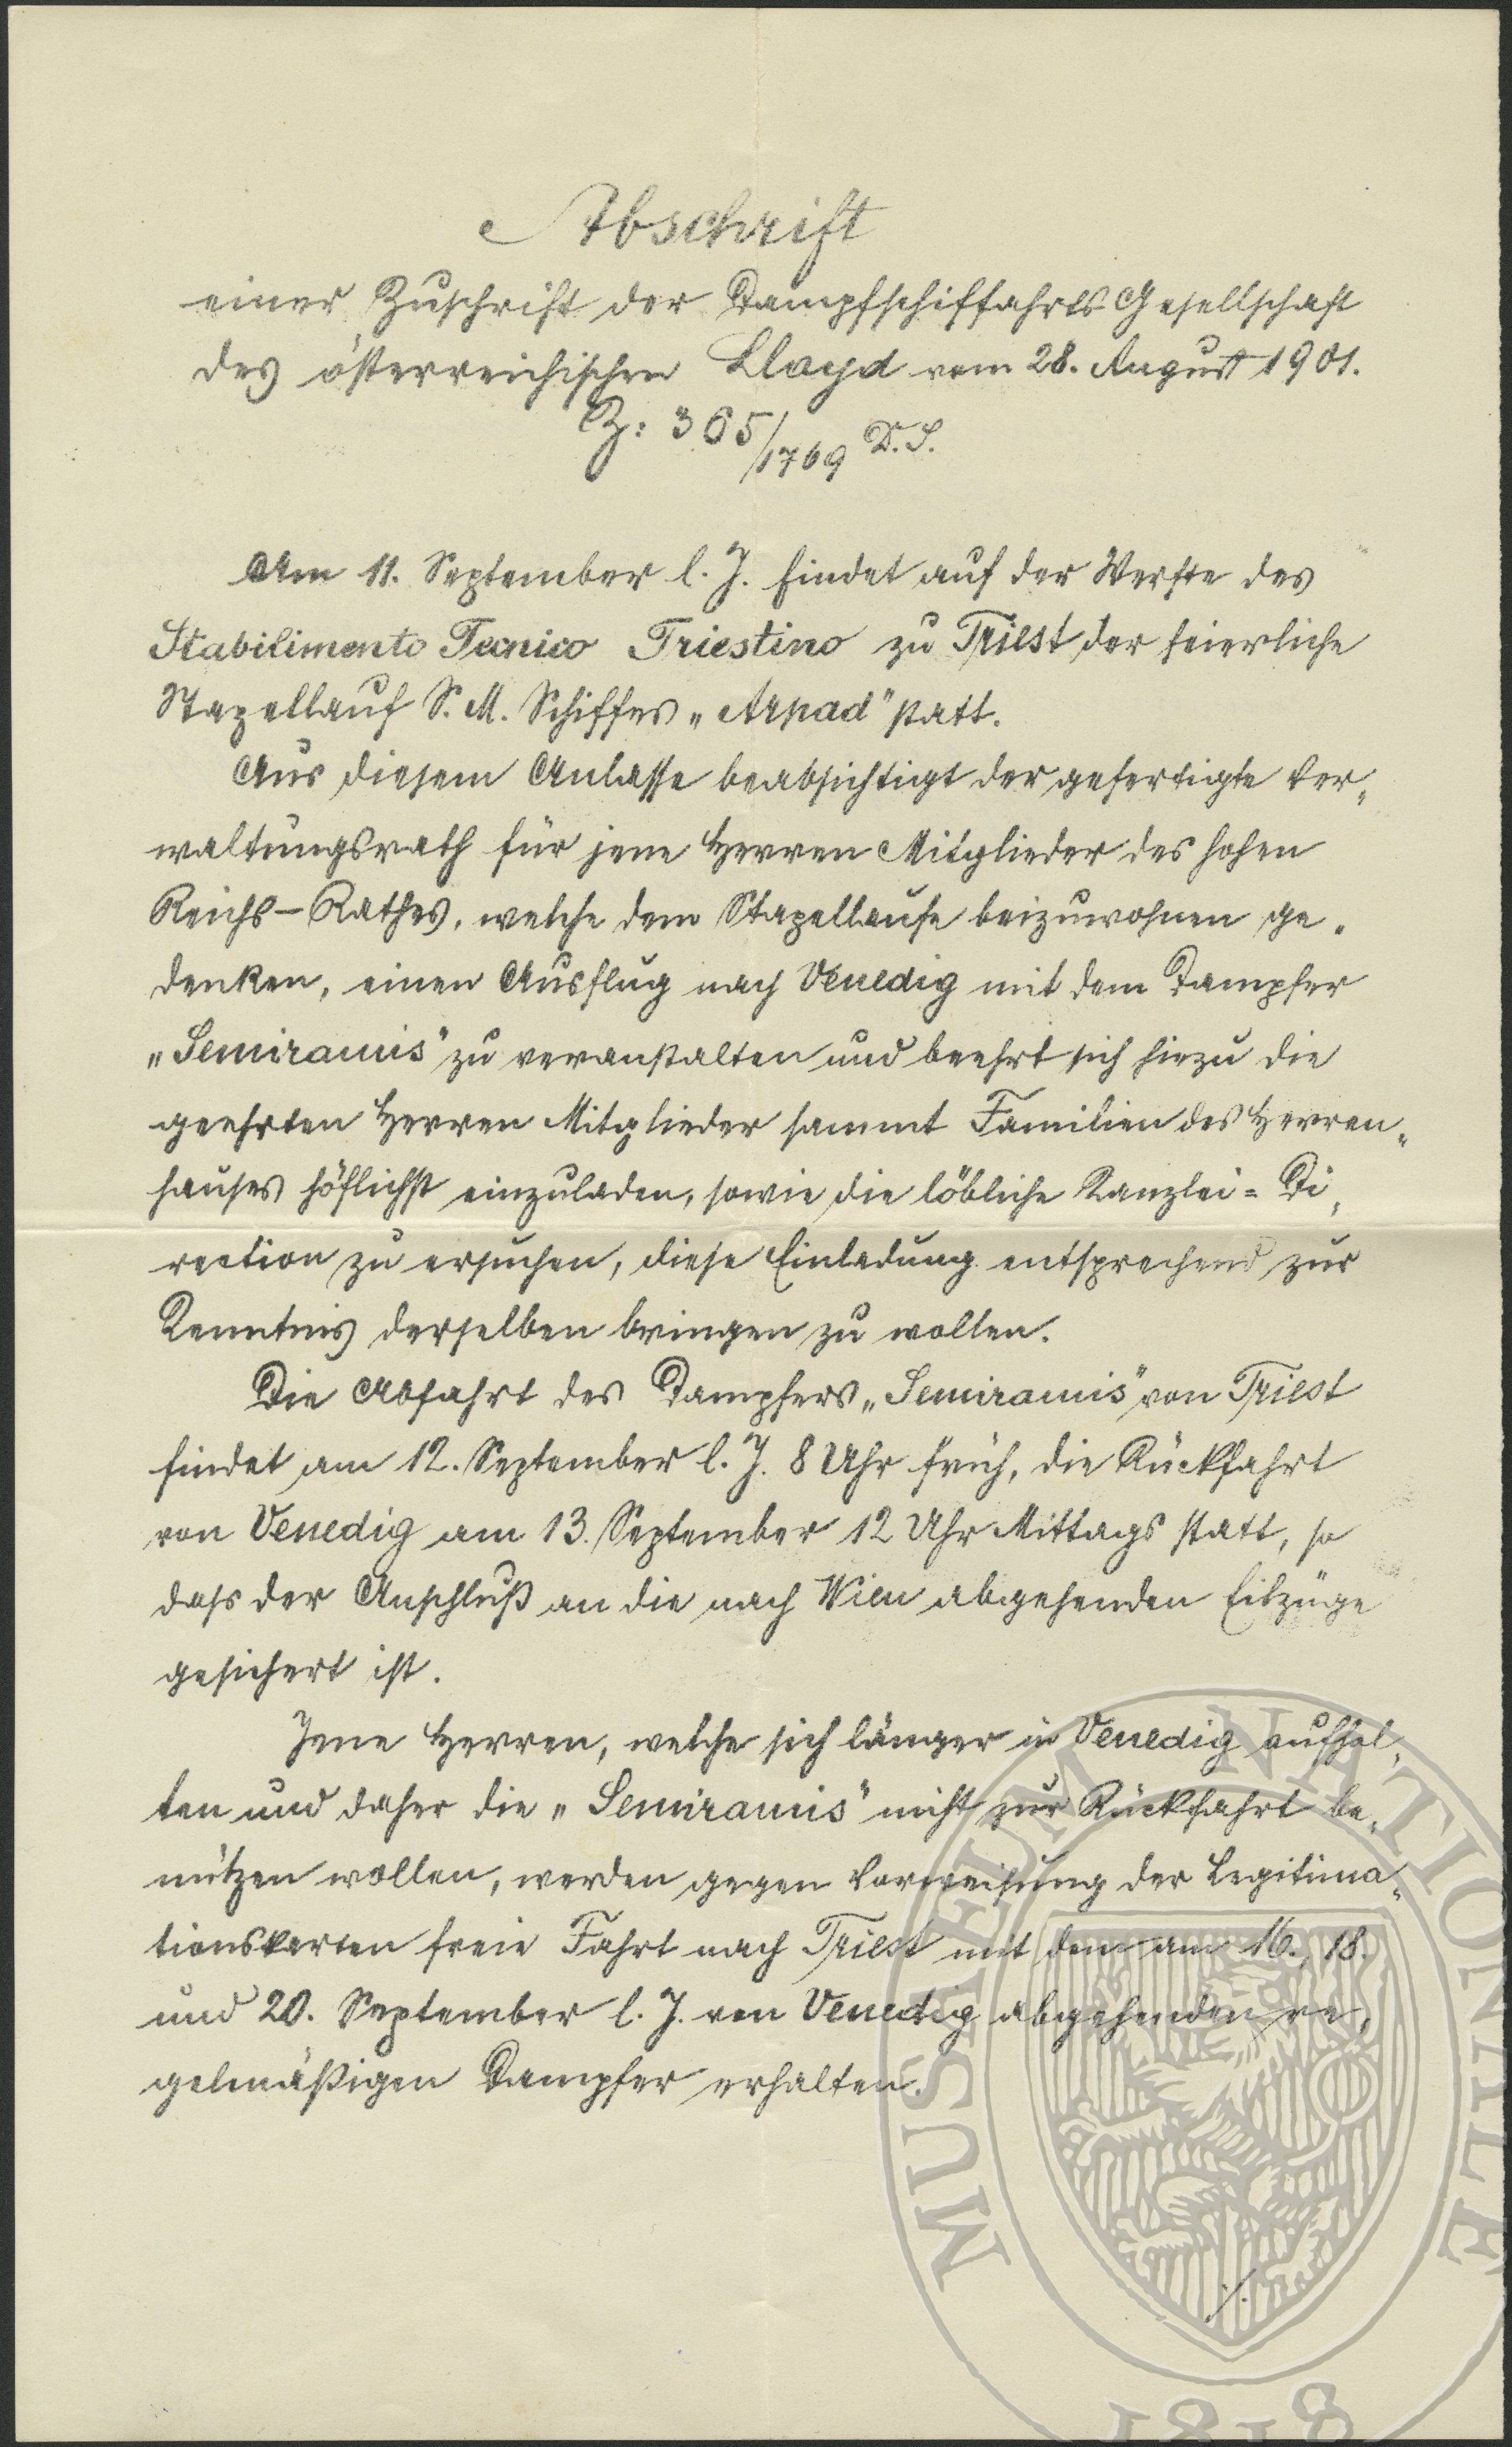 Abschrift
einer Zuschrift der Dampfschiffahrts Gesellschaft
des österreichischen Lloyd vom 28. August 1901.
Z: 365/1769 D.S.
Am 11. September l. J. findet auf der Werfte des
Stabilimento Tecnico Triestino zu Triest der feierliche
Stapellauf S. M. Schiffes „Arpad" statt.
Aus diesem Anlasse beabsichtigt der gefertigte Ver„
waltungsrath für jene Herren Mitglieder des hohen
Reichs-Rathes, welche dem Stapellaufe beizuwohnen ge„
denken, einen Ausflug nach Venedig mit dem Dampfer
„Semiramis" zu veranstalten und beehrt sich hiezu die
geehrten Herren Mitglieder sammt Familien des Herren„
hauses höflichst einzuladen, sowie die löbliche Kanzlei=Di„
rection zu ersuchen, diese Einladung entsprechend zur
Kenntnis derselben bringen zu wollen.
Die Abfahrt des Dampfers „Semiramis" von Triest
findet am 12. September l. J. 8 Uhr früh, die Rückfahrt
von Venedig am 13. September 12 Uhr Mittags statt, so
dass der Anschluß an die nach Wien abgehenden Eilzüge
gesichert ist.
Jene Herren, welche sich länger in Venedig aufhal„
ten und daher die „Semiramis" nicht zur Rückfahrt be„
nützen wollen, werden gegen Vorweisung der Legitima„
tionskarten freie Fahrt nach Triest mit dem am 16., 18.
und 20. September l. J. von Venedig abgehenden re„
gelmäßigen Dampfer erhalten.
./.
MUSAEUM NATIONALE
1818